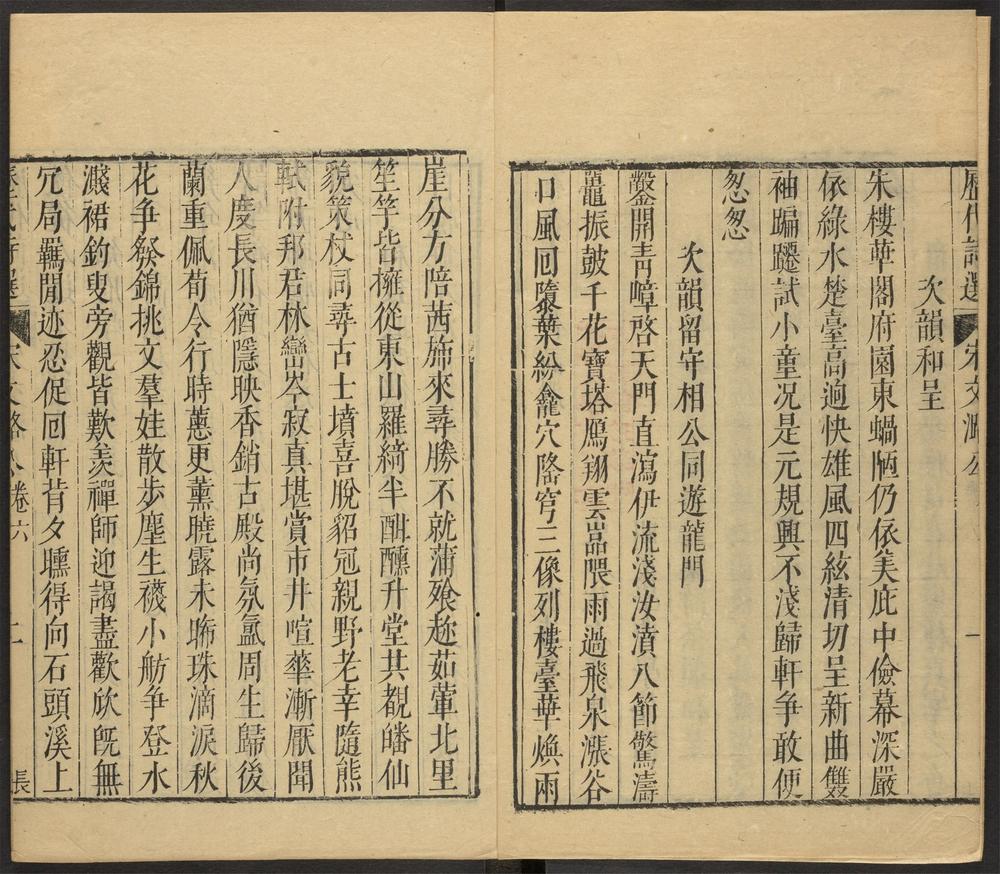 歷代詩選 宋文潞公
一
次韻和呈
朱樓華閣府園東蝸陋仍依美庇中儉幕深嚴
依綠水楚臺高逈快雄風四絃清切呈新曲雙
袖蹁躚試小童况是元規興不淺歸軒争敢便
怱怱
次韻留守相公同遊龍門
鑿開青嶂啓天門直瀉伊流淺汝濆八節驚濤
鼉振鼓千花寶塔鴈翔雲嵓隈雨過飛泉漲谷
口風囘墮葉紛龕穴隆穹三像列樓臺華煥兩
崖分方陪茜斾來尋勝不就蒲飱趂茹葷北里
笙竽皆擁從東山羅綺半酣醺升堂共覩皤仙
貌策杖同尋古士墳喜脫貂冠親野老幸隨熊
軾附邦君林巒岑寂真堪賞市井喧華漸厭聞
人度長川猶隱映香銷古殿尚氛氲周生歸後
蘭重佩荀令行時蕙更薰曉露未晞珠滴淚秋
花争發錦挑文羣娃散步塵生襪小舫争登水
濺裙釣叟旁觀皆歎羨禪師迎謁盡歡欣旣無
冗局羈閒迹忍促囘軒背夕曛得向石頭溪上
宋文潞公 卷六
二
長